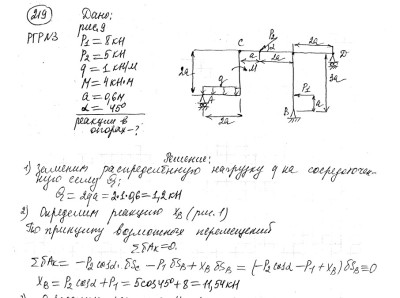 219
РГР N3
Дано:
рис. 9
P₁ = 8 кН
P₂ = 5 кН
q = 1 кН/м
M = 4 кН·м
a = 0,6 м
α = 45°
реакции в
опорах - ?
C
P₂
2a
a
α
D
2a
M
3a
q
A
P₁
B
a
2a
Решение:
1) Заменим распределённую нагрузку q на сосредоточен-
ную силу Q:
Q = 2qa = 2·1·0,6 = 1,2 кН
2) Определим реакцию X_B (рис. 1)
По принципу возможных перемещений
ΣδA_K = 0.
ΣδA_K = -P₂cosα·δS_C - P₁δS_B + X_BδS_B = (-P₂cosα - P₁ + X_B)δS_B = 0
X_B = P₂cosα + P₁ = 5cos45° + 8 = 11,54 кН